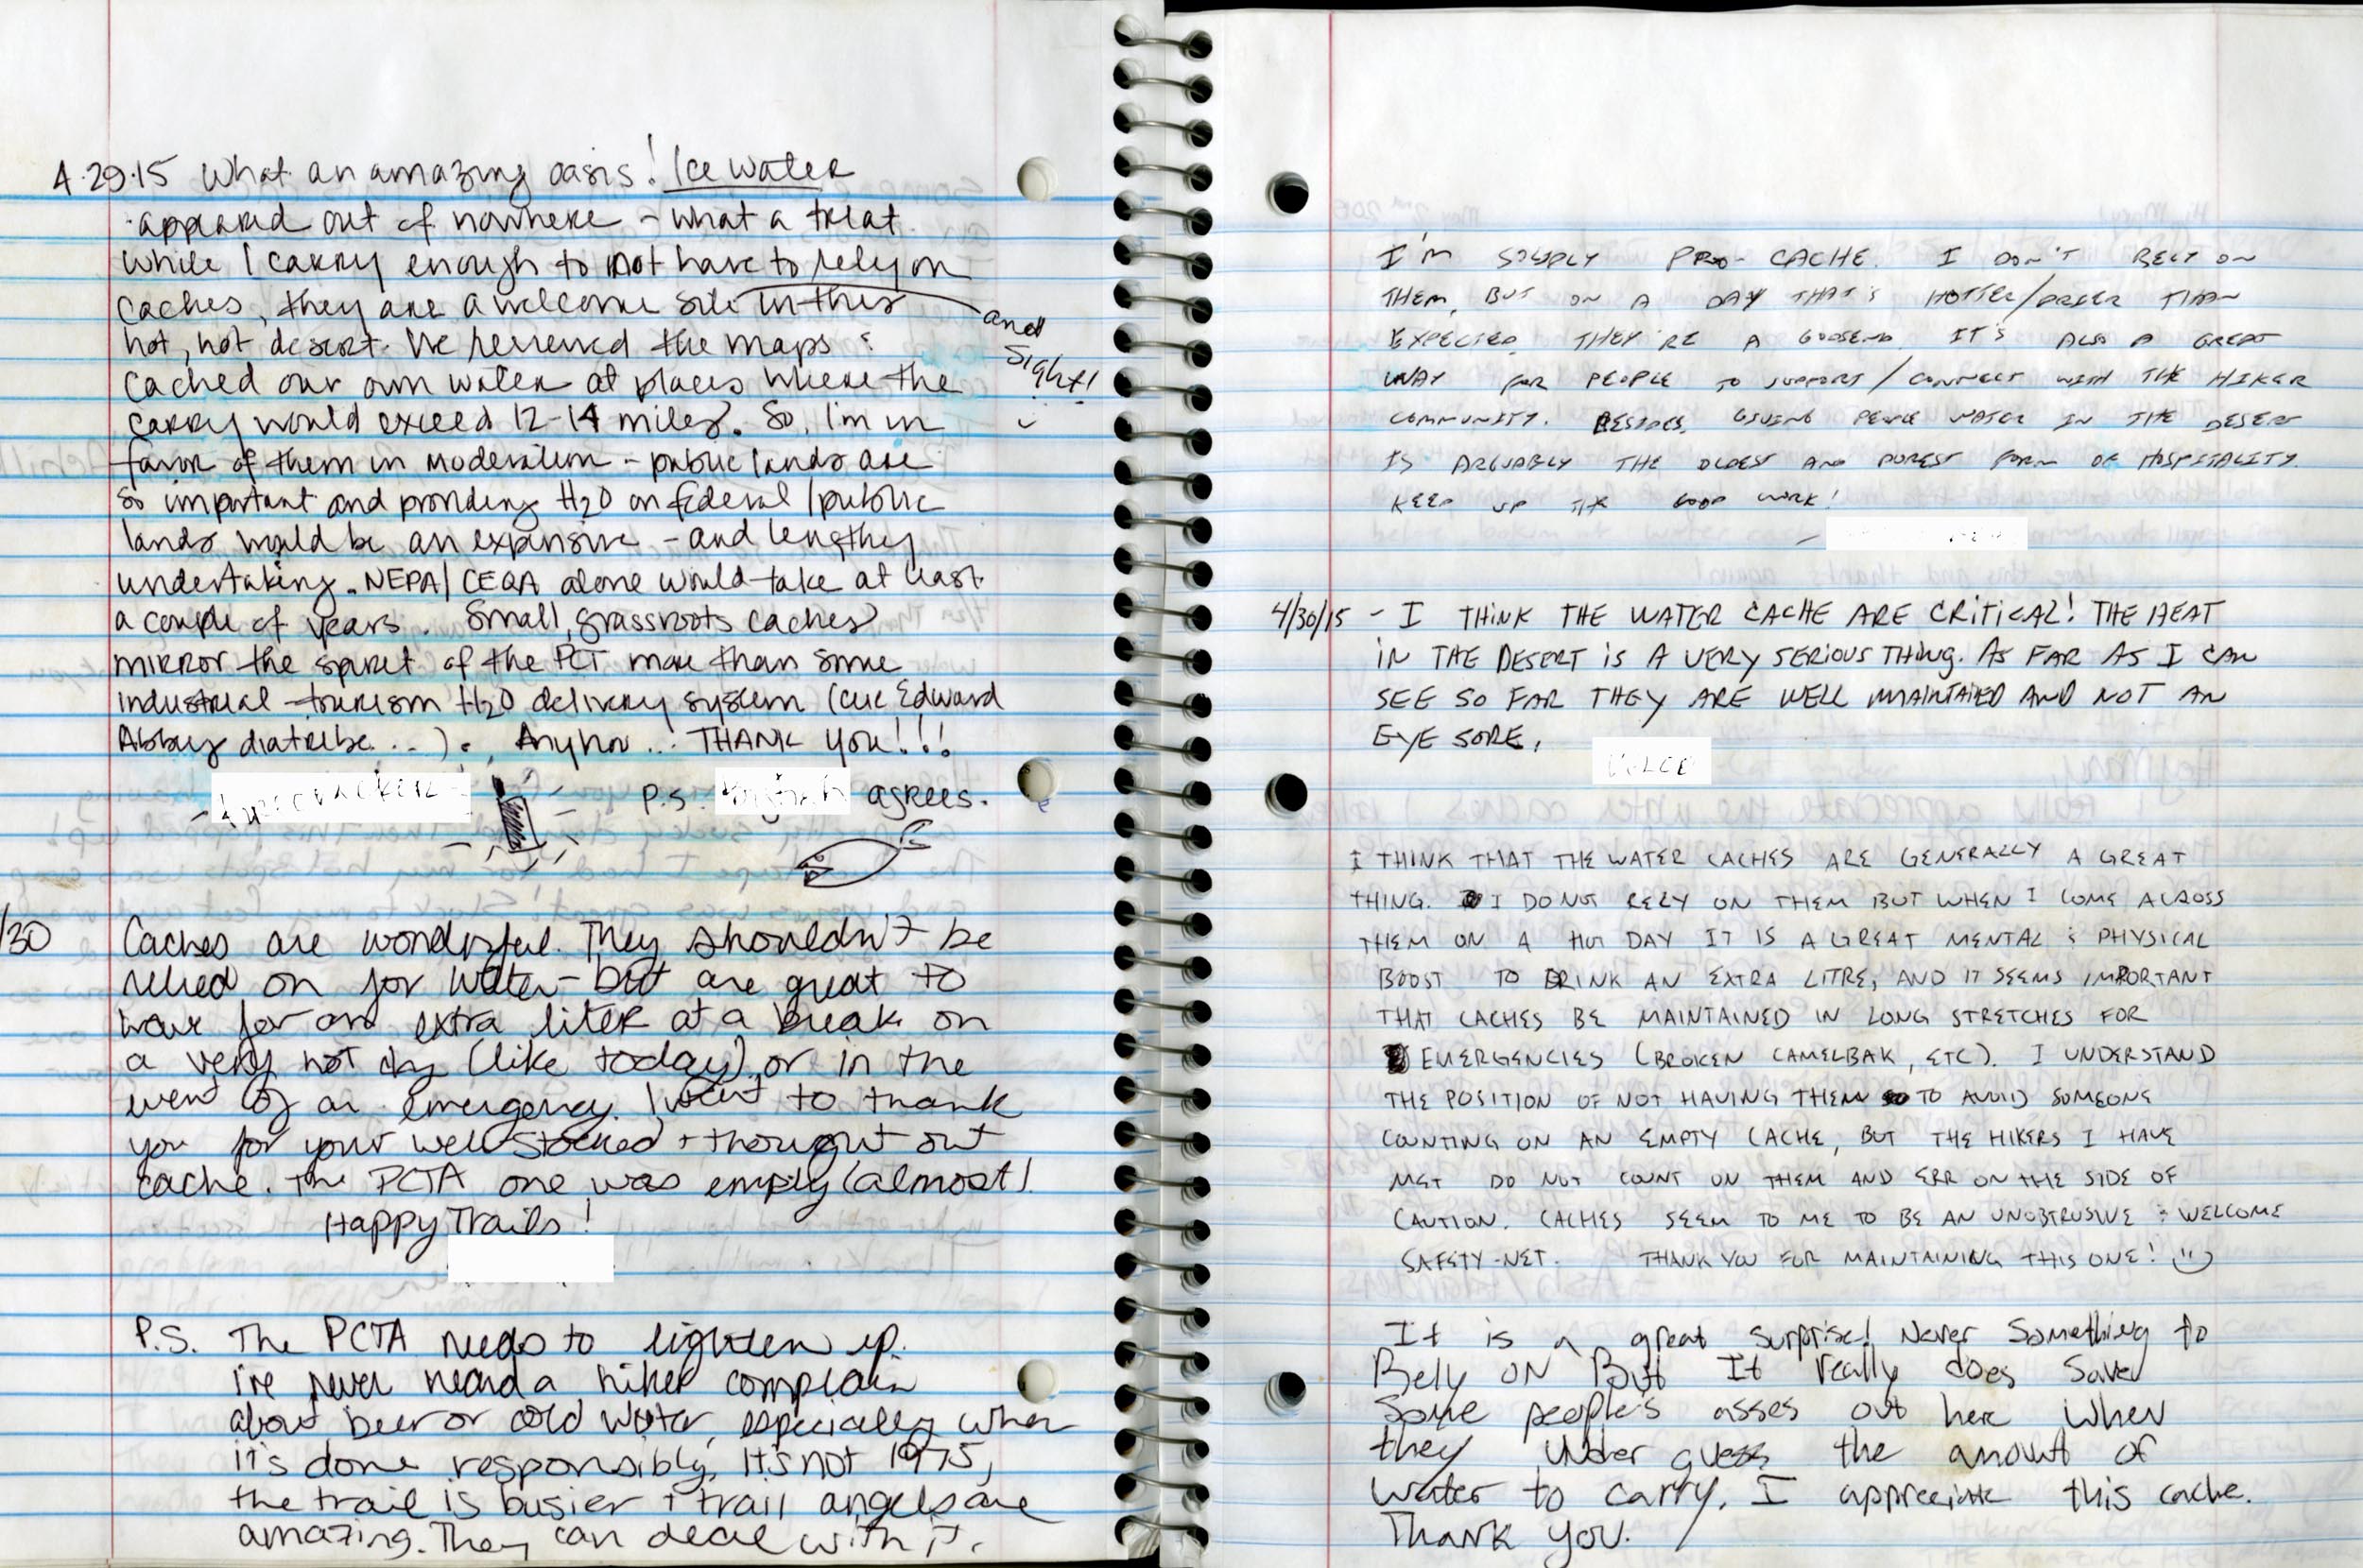 4.29.15 What an amazing oasis! Ice water
appeared out of nowhere - what a treat.
While I carry enough to not have to rely on
caches, they are a welcome site in this
and
sight!
hot, hot desert. We reviewed the maps &
cached our own water at places where the
carry would exceed 12-14 miles. So, I'm in
favor of them in moderation - public lands are
so important and providing H2O on federal/public
lands would be an expensive - and lengthy
undertaking. NEPA/CEQA alone would take at least
a couple of years. Small, grassroots caches
mirror the spirit of the PCT more than some
industrial-tourism H2O delivery system (cue Edward
Abbey diatribe...). Anyhow... THANK YOU!!!
P.S. agrees.
/30 Caches are wonderful. They shouldn't be
relied on for water - but are great to
have for an extra liter at a break on
a very hot day (like today), or in the
event of an emergency. I want to thank
you for your well stocked + thought out
cache. The PCTA one was empty (almost).
Happy Trails!
P.S. The PCTA needs to lighten up.
I've never heard a hiker complain
about beer or cold water, especially when
it's done responsibly. It's not 1975,
the trail is busier + trail angels are
amazing. They can deal with it.
I'M SIMPLY PRO-CACHE. I DON'T RELY ON
THEM, BUT ON A DAY THAT'S HOTTER/DRIER THAN
EXPECTED, THEY'RE A GODSEND. IT'S ALSO A GREAT
WAY FOR PEOPLE TO SUPPORT/CONNECT WITH THE HIKER
COMMUNITY. BESIDES, GIVING PEOPLE WATER IN THE DESERT
IS ARGUABLY THE OLDEST AND PUREST FORM OF HOSPITALITY.
KEEP UP THE GOOD WORK!
4/30/15 - I THINK THE WATER CACHE ARE CRITICAL! THE HEAT
IN THE DESERT IS A VERY SERIOUS THING. AS FAR AS I CAN
SEE SO FAR THEY ARE WELL MAINTAINED AND NOT AN
EYE SORE.
I THINK THAT THE WATER CACHES ARE GENERALLY A GREAT
THING. I DO NOT RELY ON THEM BUT WHEN I COME ACROSS
THEM ON A HOT DAY IT IS A GREAT MENTAL & PHYSICAL
BOOST TO DRINK AN EXTRA LITRE, AND IT SEEMS IMPORTANT
THAT CACHES BE MAINTAINED IN LONG STRETCHES FOR
EMERGENCIES (BROKEN CAMELBAK, ETC). I UNDERSTAND
THE POSITION OF NOT HAVING THEM TO AVOID SOMEONE
COUNTING ON AN EMPTY CACHE, BUT THE HIKERS I HAVE
MET DO NOT COUNT ON THEM AND ERR ON THE SIDE OF
CAUTION. CACHES SEEM TO ME TO BE AN UNOBTRUSIVE & WELCOME
SAFETY-NET. THANK YOU FOR MAINTAINING THIS ONE!
It is a great surprise! Never Something to
Rely ON But It really does Save
Some people's asses out here when
they under guess the amount of
water to carry. I appreciate this cache.
Thank you.